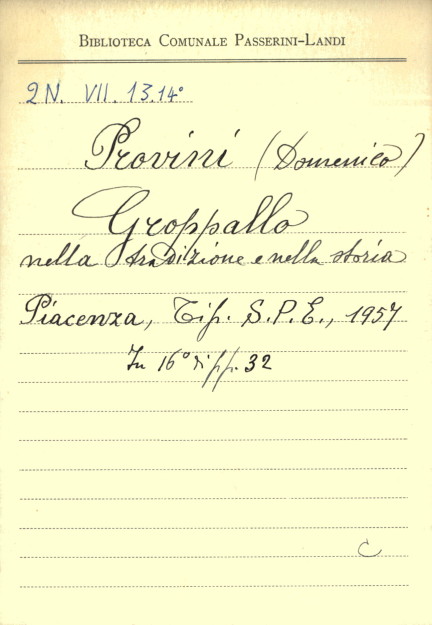 Biblioteca Comunale Passerini-Landi
2N. VII. 13.14°
Provini (Domenico)
Groppallo
nella tradizione e nella storia
Piacenza, Tip. S.P.E., 1957
In 16° di pp. 32
C